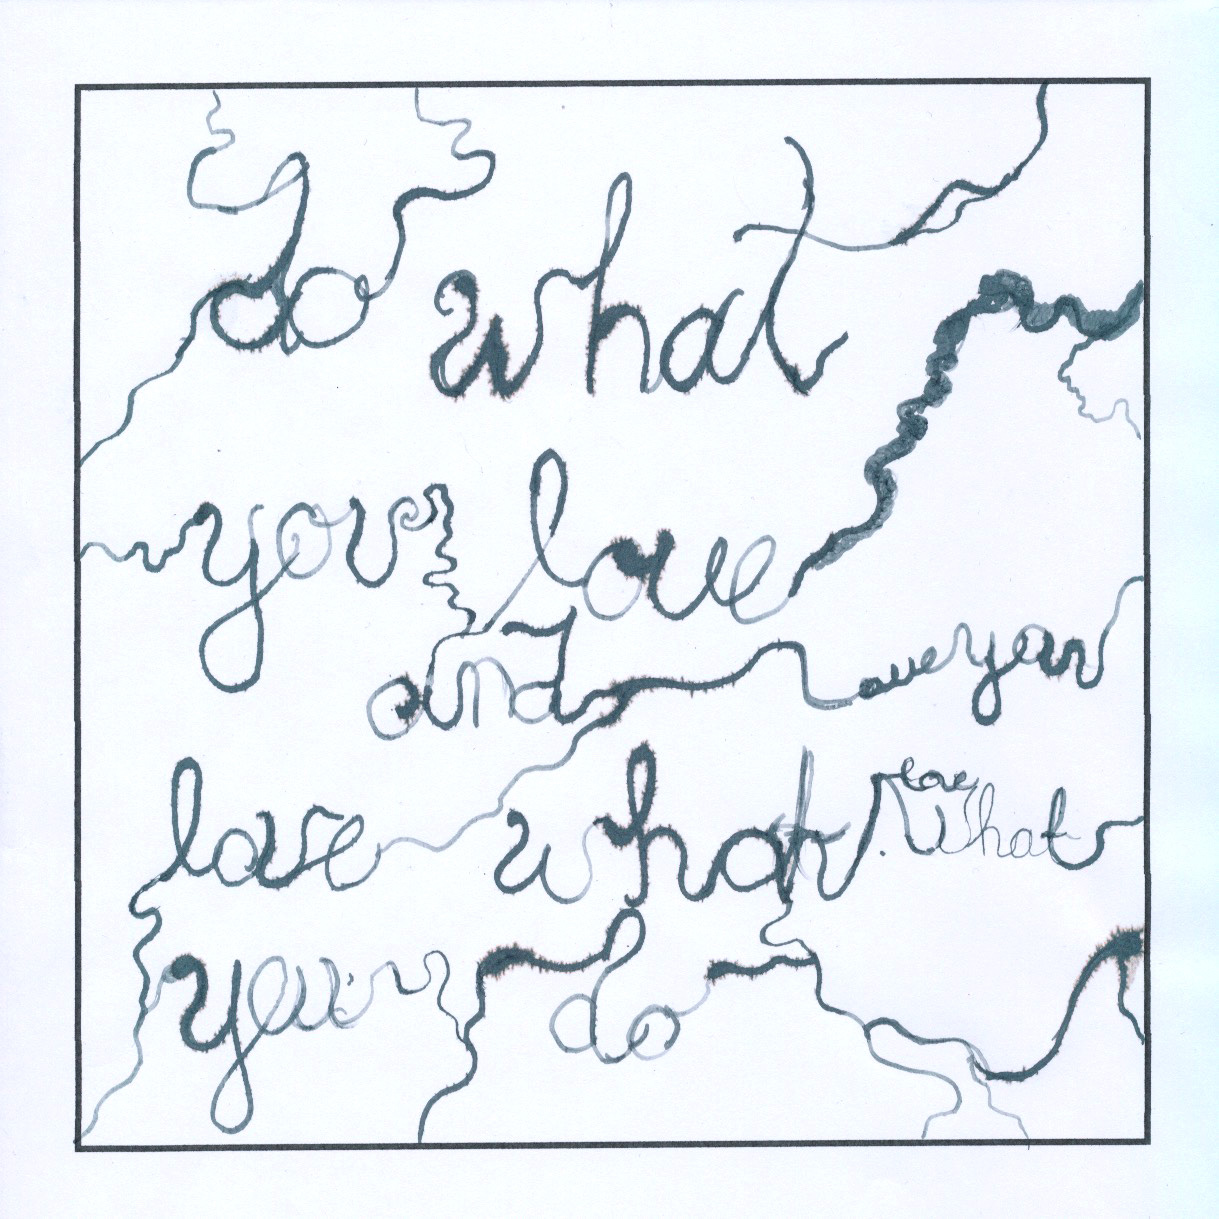 do what
you love
and love you
love what love what
you do